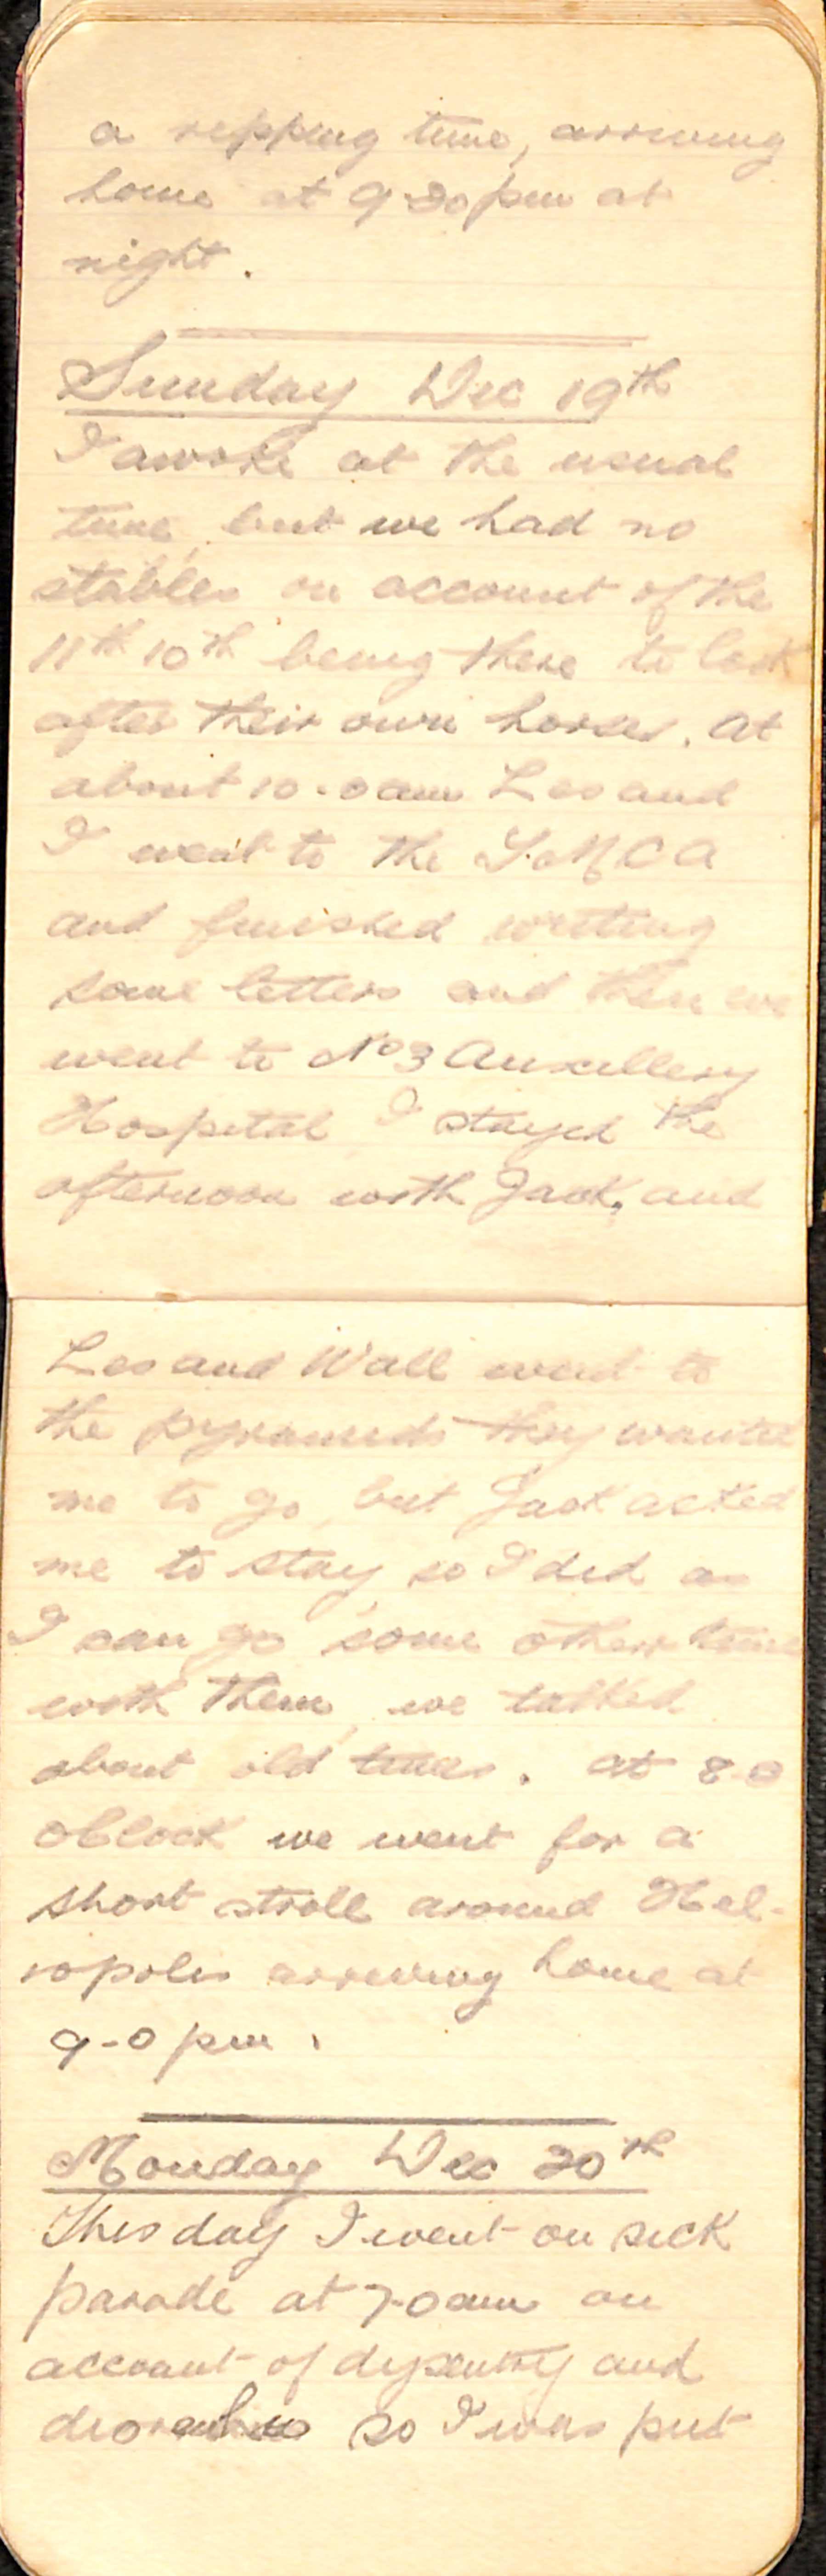 a ripping time, arriving
home at 9-30pm at
night.
Sunday Dec 19th
I awoke at the usual
time, but we had no
stables on account of the
11th 10th being there to look
after their own horses. At
about 10-0am Les and
I went to the Y.M.C.A
and finished writing
some letters and then we
went to No 3 Auxillery
Hospital I stayed the
afternoon with Jack, and
Les and Wall went to
the pyramids they wanted
me to go, but Jack asked
me to stay, so I did as
I can go some other time
with them, we talked
about old times. At 8-0
oclock we went for a
short stroll around Hel-
iopolis arriving home at
9-0pm.
Monday Dec 20th
This day I went on sick
parade at 7-0am on
account of dysentry and
so I was put